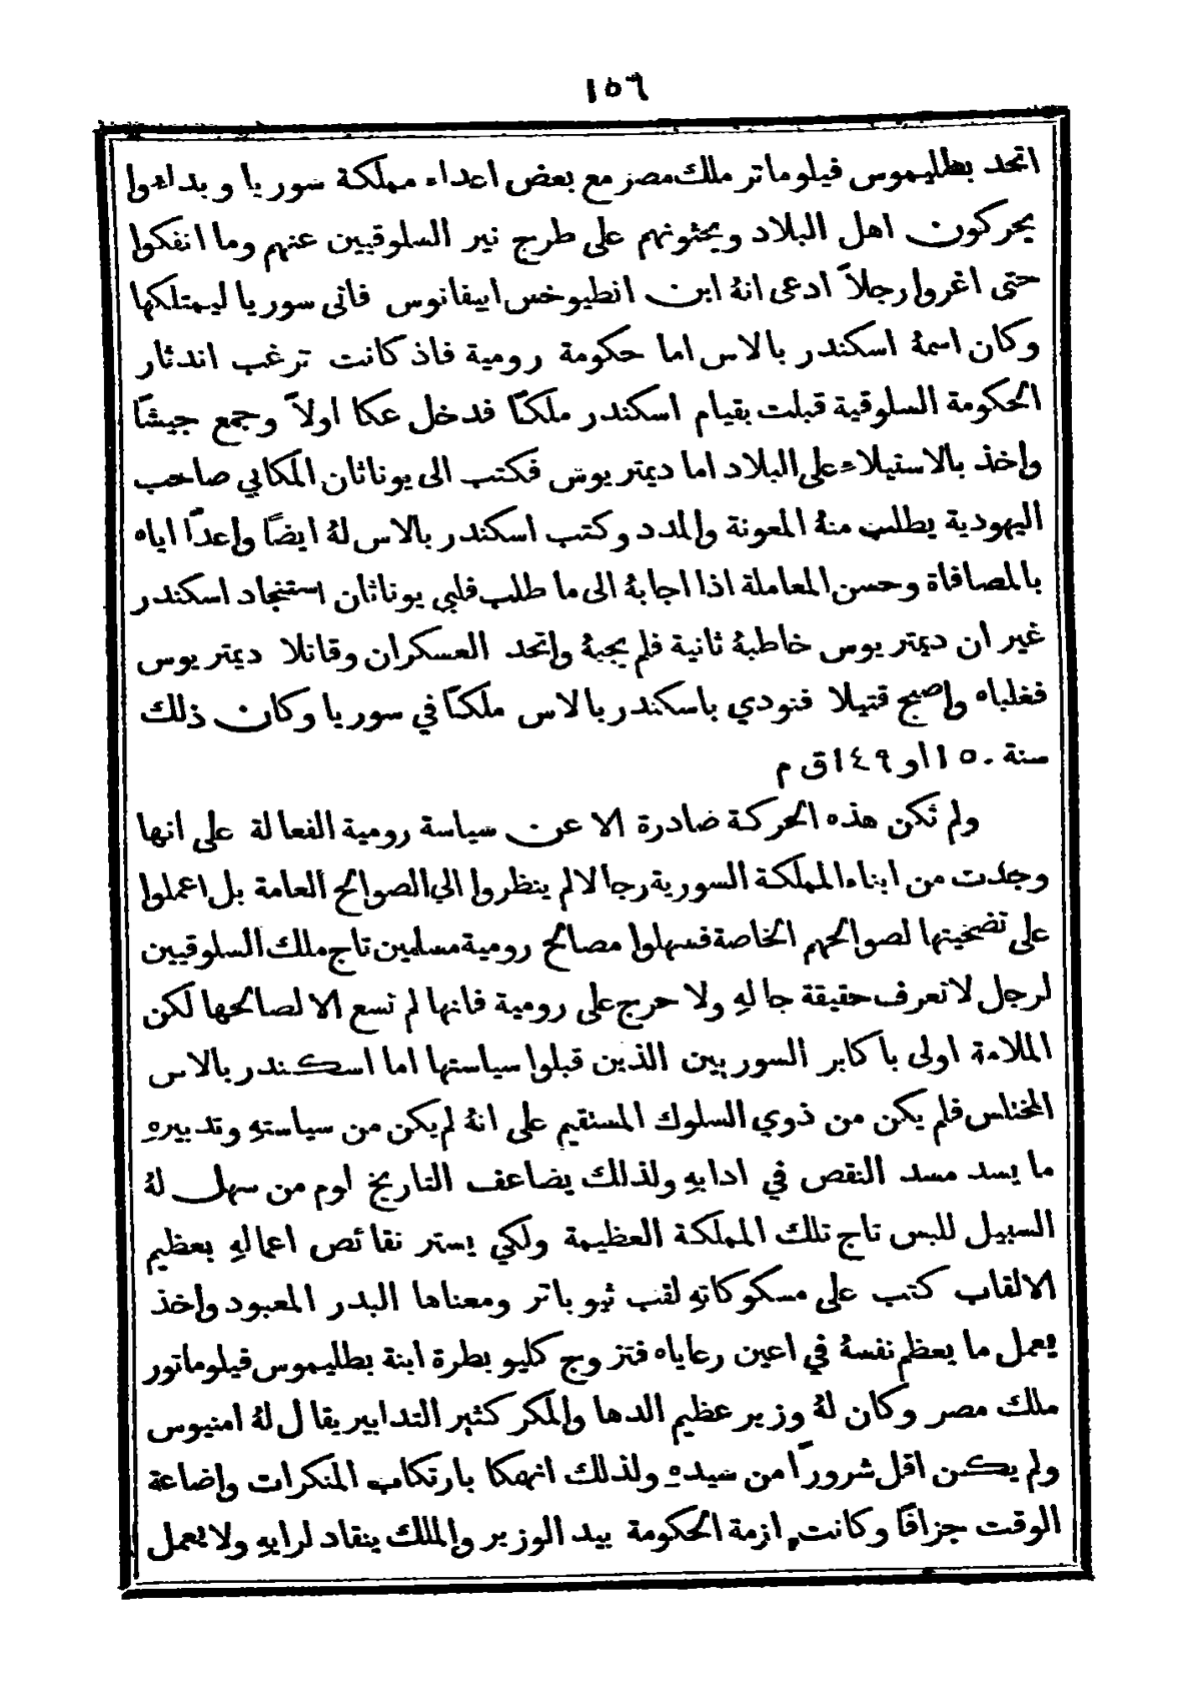 ١٥٦
اتحد بطليموس فيلوماتر ملك مصر مع بعض اعداء مملكة سوريا وبداءوا
يحركون اهل البلاد ويحثونهم على طرح نير السلوقيين عنهم وما انفكوا
حتى اغروا رجلاً ادعى انهُ ابن انطيوخس ابيفانوس فاتى سوريا ليمتلكها
وكان اسمهُ اسكندر بالاس اما حكومة رومية فاذ كانت ترغب اندثار
الحكومة السلوقية قبلت بقيام اسكندر ملكًا فدخل عكا اولاً وجمع جيشًا
واخذ بالاستيلاء على البلاد اما ديمتريوس فكتب الى يوناثان المكابي صاحب
اليهودية يطلب منهُ المعونة والمدد وكتب اسكندر بالاس لهُ ايضًا واعدًا اياه
بالمصافاة وحسن المعاملة اذا اجابهُ الى ما طلب فلبى يوناثان استنجاد اسكندر
غير ان ديمتريوس خاطبهُ ثانية فلم يجبهُ واتحد العسكران وقاتلا ديمتريوس
فغلباه واصبح قتيلا فنودي باسكندر بالاس ملكًا في سوريا وكان ذلك
سنة ١٥٠ او ١٤٩ ق م
ولم تكن هذه الحركة صادرة الا عن سياسة رومية الفعالة على انها
وجدت من ابناء المملكة السورية رجالا لم ينظروا الى الصوالح العامة بل اعملوا
على تضحيتها لصوالحهم الخاصة فسهلوا مصالح رومية مسلمين تاج ملك السلوقيين
لرجل لا تعرف حقيقة حالهِ ولا حرج على رومية فانها لم تسع الا لصالحها لكن
الملامة اولى باكابر السوريين الذين قبلوا سياستها اما اسكندر بالاس
المختلس فلم يكن من ذوي السلوك المستقيم على انهُ لم يكن من سياستهِ وتدبيرهِ
ما يسد مسد النقص في ادابهِ ولذلك يضاعف التاريخ لوم من سهل لهُ
السبيل للبس تاج تلك المملكة العظيمة ولكي يستر نقائص اعمالهِ بعظيم
الالقاب كتب على مسكوكاتهِ لقب ثيوباتر ومعناها البدر المعبود واخذ
يعمل ما يعظم نفسهُ في اعين رعاياه فتزوج كليوبطرة ابنة بطليموس فيلوماتور
ملك مصر وكان لهُ وزير عظيم الدها والمكر كثير التدابير يقال لهُ امنيوس
ولم يكن اقل شرورًا من سيدهِ ولذلك انهمكا بارتكاب المنكرات واضاعة
الوقت جزافًا وكانت ازمة الحكومة بيد الوزير والملك ينقاد لرايهِ ولا يعمل